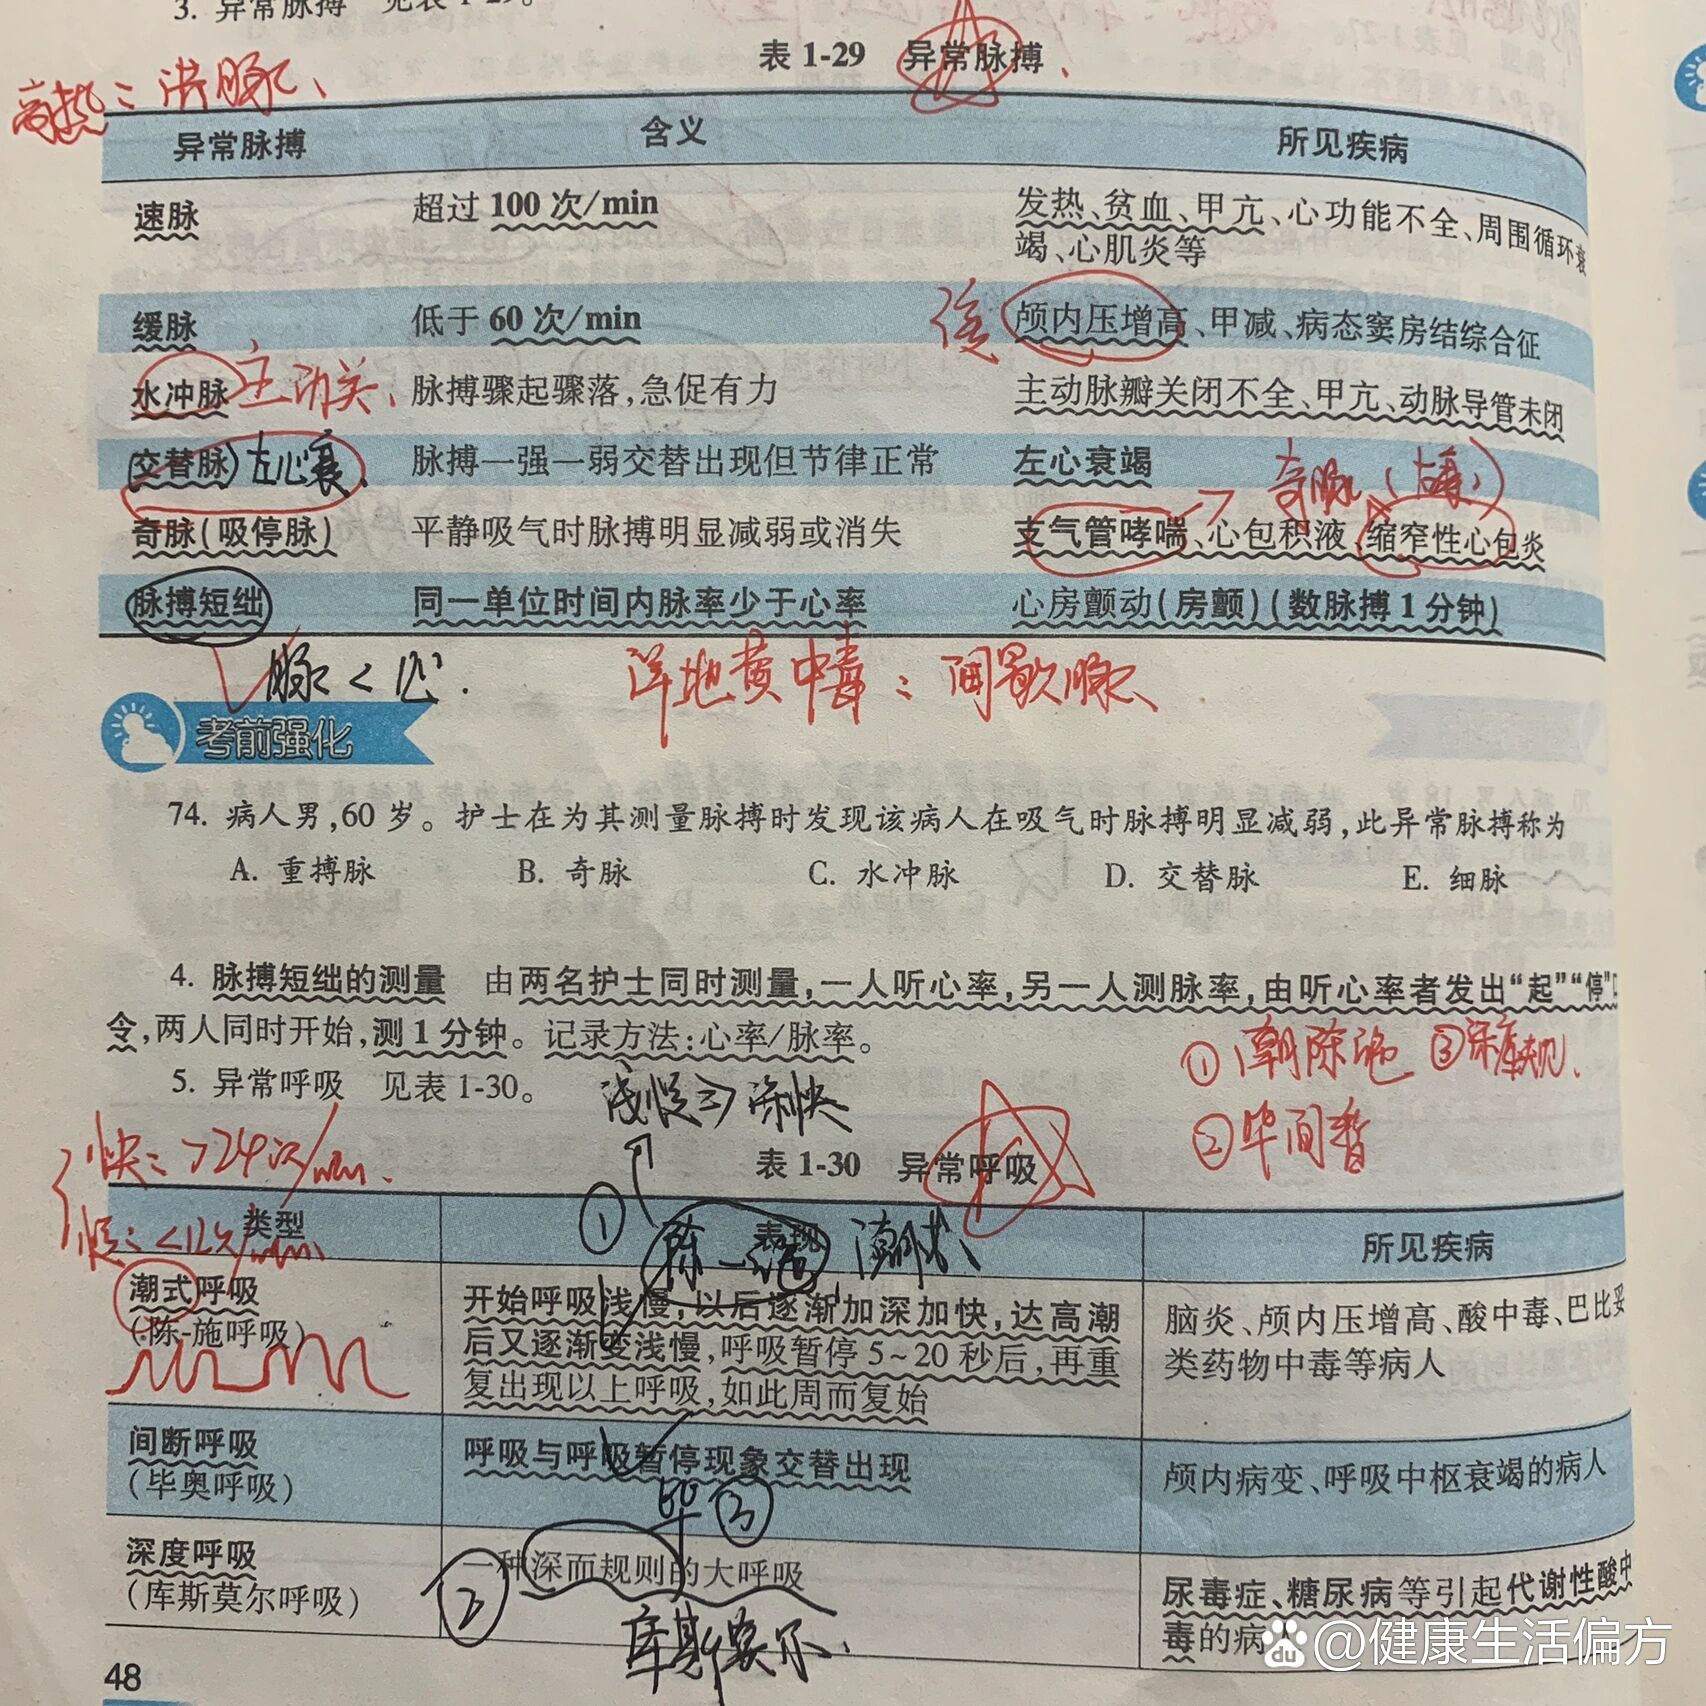 3. 异常脉搏 见表1-29。
表 1-29 异常脉搏
高热：洪脉、
异常脉搏 含义 所见疾病
速脉 超过 100 次/min 发热、贫血、甲亢、心功能不全、周围循环衰
竭、心肌炎等
缓脉 低于 60 次/min 颅内压增高、甲减、病态窦房结综合征
水冲脉 主动关、 脉搏骤起骤落,急促有力 主动脉瓣关闭不全、甲亢、动脉导管未闭
(交替脉) 左心衰、 脉搏一强一弱交替出现但节律正常 左心衰竭
奇脉
奇脉(吸停脉) 平静吸气时脉搏明显减弱或消失 支气管哮喘、心包积液、缩窄性心包炎
脉搏短绌 同一单位时间内脉率少于心率 心房颤动(房颤)(数脉搏1分钟)
脉<心. 洋地黄中毒：间歇脉、
考前强化
74. 病人男,60岁。护士在为其测量脉搏时发现该病人在吸气时脉搏明显减弱,此异常脉搏称为
A. 重搏脉 B. 奇脉 C. 水冲脉 D. 交替脉 E. 细脉
4. 脉搏短绌的测量 由两名护士同时测量,一人听心率,另一人测脉率,由听心率者发出“起”“停”口
令,两人同时开始,测1分钟。记录方法:心率/脉率。
①潮陈施 ③深库规、
5. 异常呼吸 见表 1-30。
浅慢⇒深快
②毕间暂
快：>24次/min、
表 1-30 异常呼吸
慢：<12次/min、
① 陈一施 潮式、
类型 表现 所见疾病
潮式呼吸
(陈-施呼吸)
开始呼吸浅慢,以后逐渐加深加快,达高潮
后又逐渐变浅慢,呼吸暂停 5~20 秒后,再重
复出现以上呼吸,如此周而复始
脑炎、颅内压增高、酸中毒、巴比妥
类药物中毒等病人
间断呼吸
(毕奥呼吸)
呼吸与呼吸暂停现象交替出现
毕 ③
颅内病变、呼吸中枢衰竭的病人
深度呼吸
(库斯莫尔呼吸)
② 一种深而规则的大呼吸
库斯莫尔、
尿毒症、糖尿病等引起代谢性酸中
毒的病人
48
@健康生活偏方